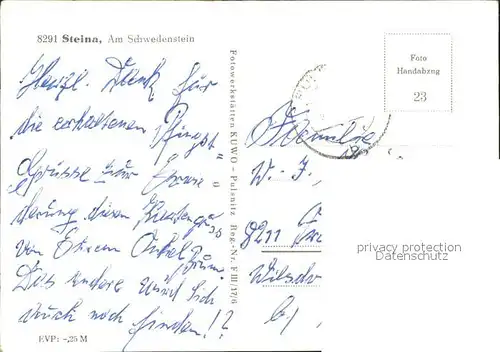 8291 Steina, Am Schwedenstein
Herzl. Dank für
die erhaltenen Pfingst"
Grüsse zur Erwie "
derung diesen Kartengruss
von Eurem Onkel
Das andere wird sich
auch noch finden!?
EVP: -,25 M
Fotowerkstätten KUWO - Pulsnitz Reg.-Nr. F III/17/6
Foto
Handabzug
23
Familie
W. - J.,
8211
Wilschd
b/
privacy protection
Datenschutz